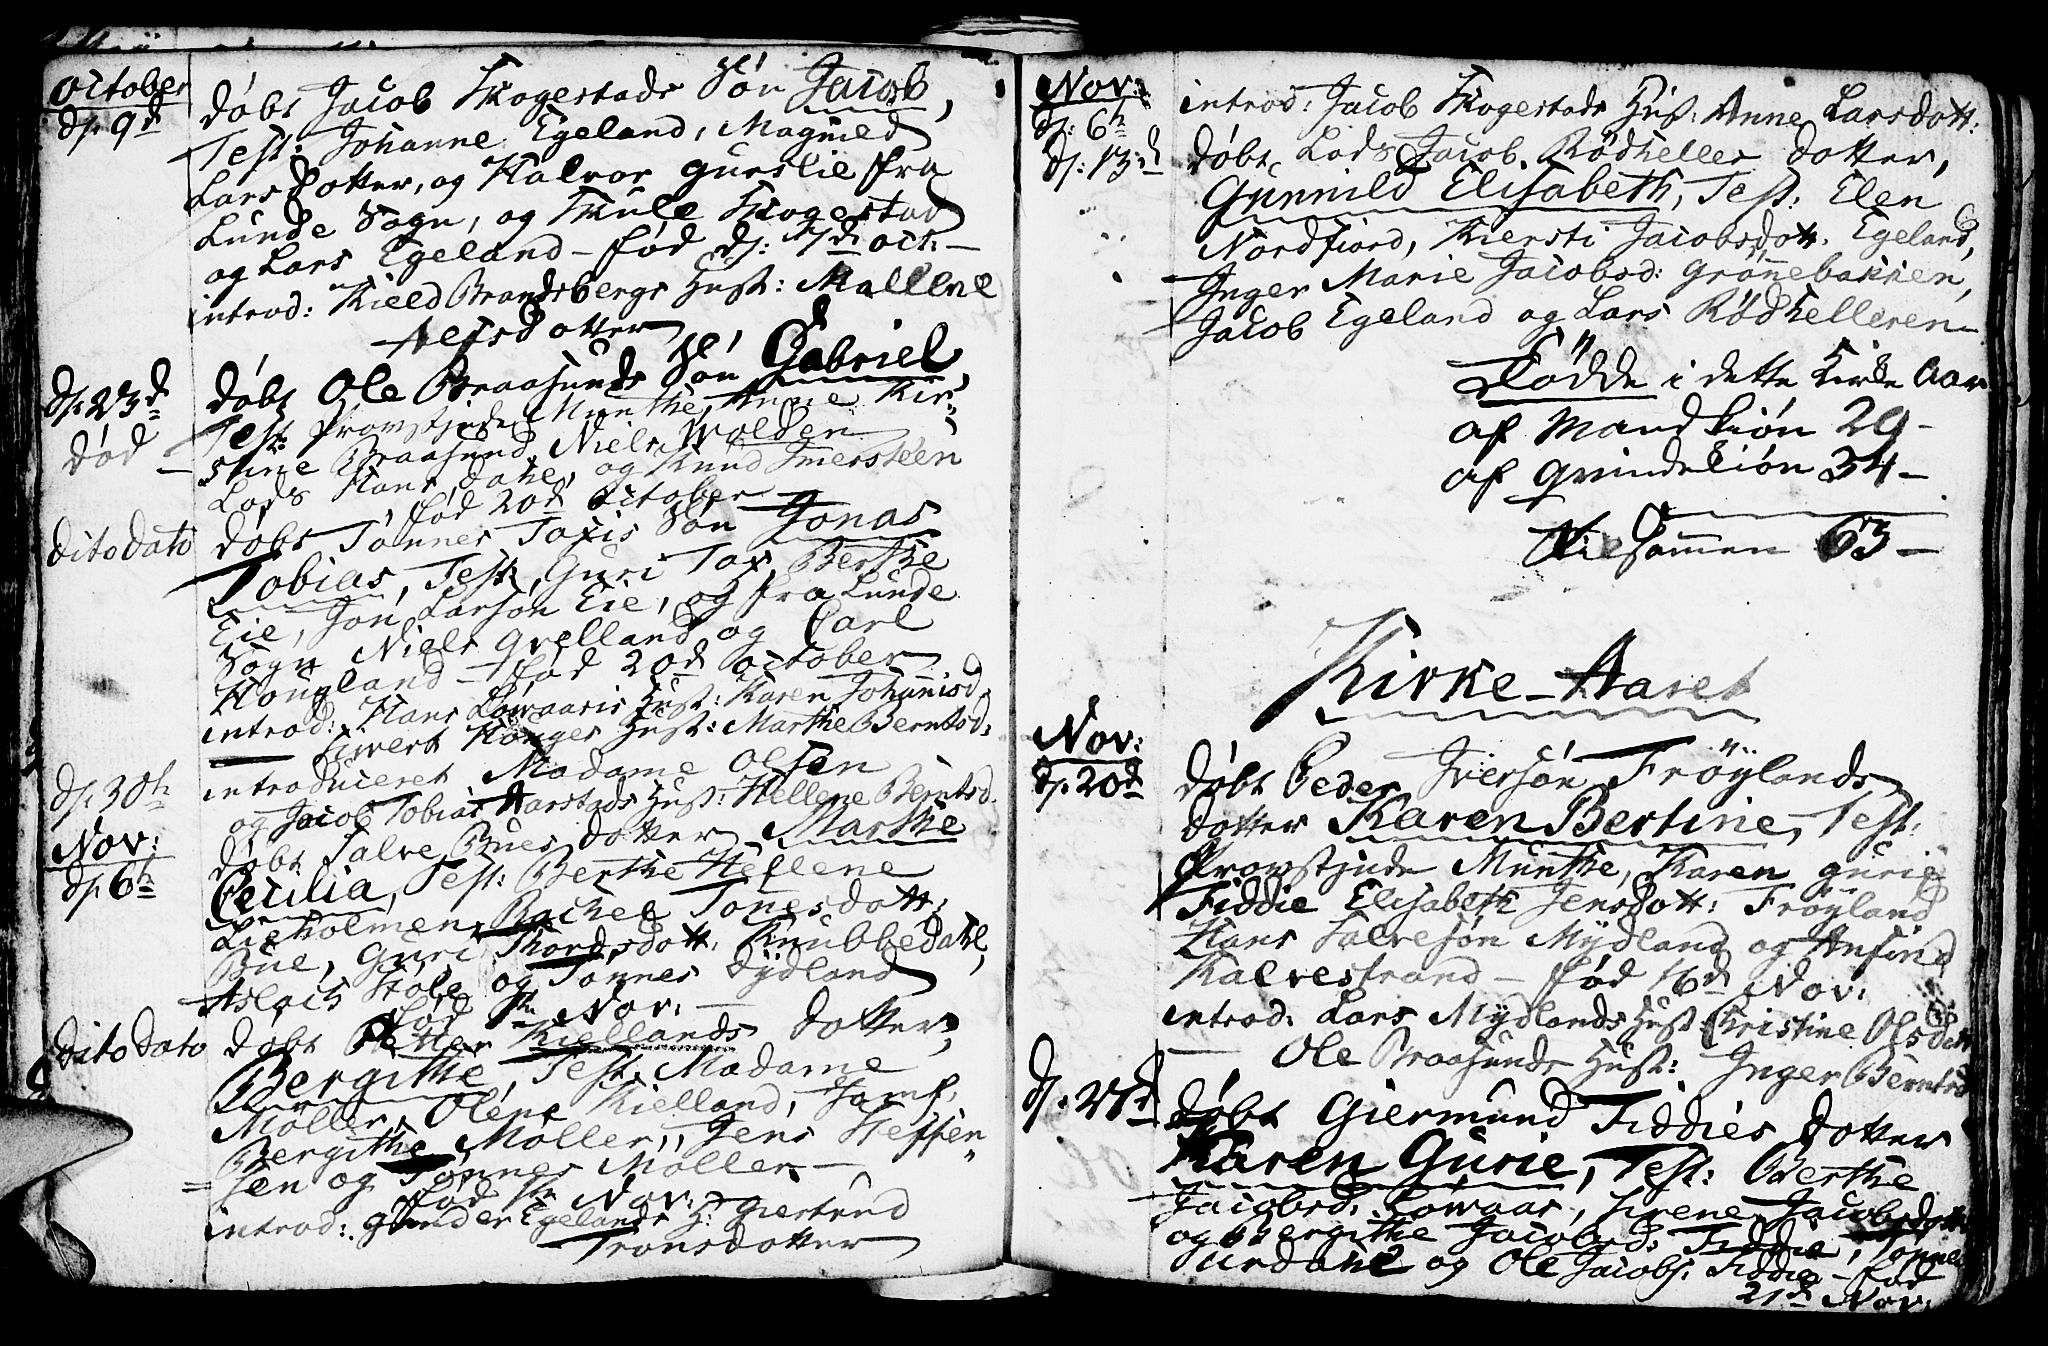 October
dj: 9d
døbt Jacob Skogestads Søn Jacob,
Test: Johanne Egeland, Magnild
Larsdotter, og Halvor Gurslie fra
Lunde Sogn, og Skule Skogestad
og Lars Egeland - fød dj: 7d oct: -
introd: Kield Brandsbergs Hust: Mallene
Alfsdotter
dj. 23d
død -
døbt Ole Braasunds Søn Gabriel,
Test: Provstinde Munthe, Anne Kir-
stine Braasund, Niels Wolden
Lods Hans Dahl, og Knud Imersteen
fød 20d October
dito dato
døbt Tønnes Taxis Søn Jonas
Tobias, Test: Guri Tax, Berthe
Eie, Jon Larson Eie, og fra Lunde
Sogn Niels Qvelland og Carl
Hougland - fød 20d October
introd: Hans Løwaaris Hust: Karen Johannisd.
Sivert Houges Hust: Marthe Berntsd:
dj. 30th
introduceret Madame Olsen
og Jacob Tobias Aarstads Hust: Hellene Berntsd.
Nov:
dj. 6th
døbt Salve Bues dotter Marthe
Cecilia, Test: Berthe Hellene
Lieholmen, Rachel Tonesdott:
Bue, Guri Thordsdott: Knubbedahl,
Aslach Stole og Tønnes Dydland
fød Nov: -
dito dato
døbt Petter Kiellands dotter,
Bergithe, Test: Madame
Møller, Olene Kielland, Jomf:
Bergithe Møller, Jens Steffen-
sen og Tønnes Møller -
fød Nov: -
introd: Gunder Egelands H: Giertrud
Tronsdotter
Nov:
dj: 6th
introd: Jacob Skogestads Hust: Anne Larsdott:
dj: 13d
døbt Lods Jacob Rødhelles dotter,
Gunnild Elisabeth, Test: Elen
Nordfiord, Kiersti Jacobsdott: Egeland,
Inger Marie Jacobsd: Grønnebakken,
Jacob Egeland og Lars Rødhelleren
Födde i dette Kirke Aar
af Mandkiøn 29 -
af Qvindekiøn 34 -
Tilsammen 63 -
Kirke-Aaret
Nov:
dj. 20d
døbt Peder Iversøn Frøylands
dotter Karen Bertine, Test:
Provstinde Munthe, Karen Gurie
Fiddie Elisabeth Jensdott: Frøyland
Hans Salvesøn Mydland og Anfind
Kalvestrand - fød 16d Nov:
introd: Lars Mydlands Hust: Christine Olsdott
Ole Braasunds Hust: Inger Berntsd
dj. 27d
døbt Giermund Fiddies dotter
Karen Gurie, Test: Berthe
Jacobsd: Løwaas, Sirene Jacobsdott
og Bergithe Jacobsd: Fiddie, Tønnes
Surdahl og Ole Jacobs: Fiddie - fød
21d Nov: